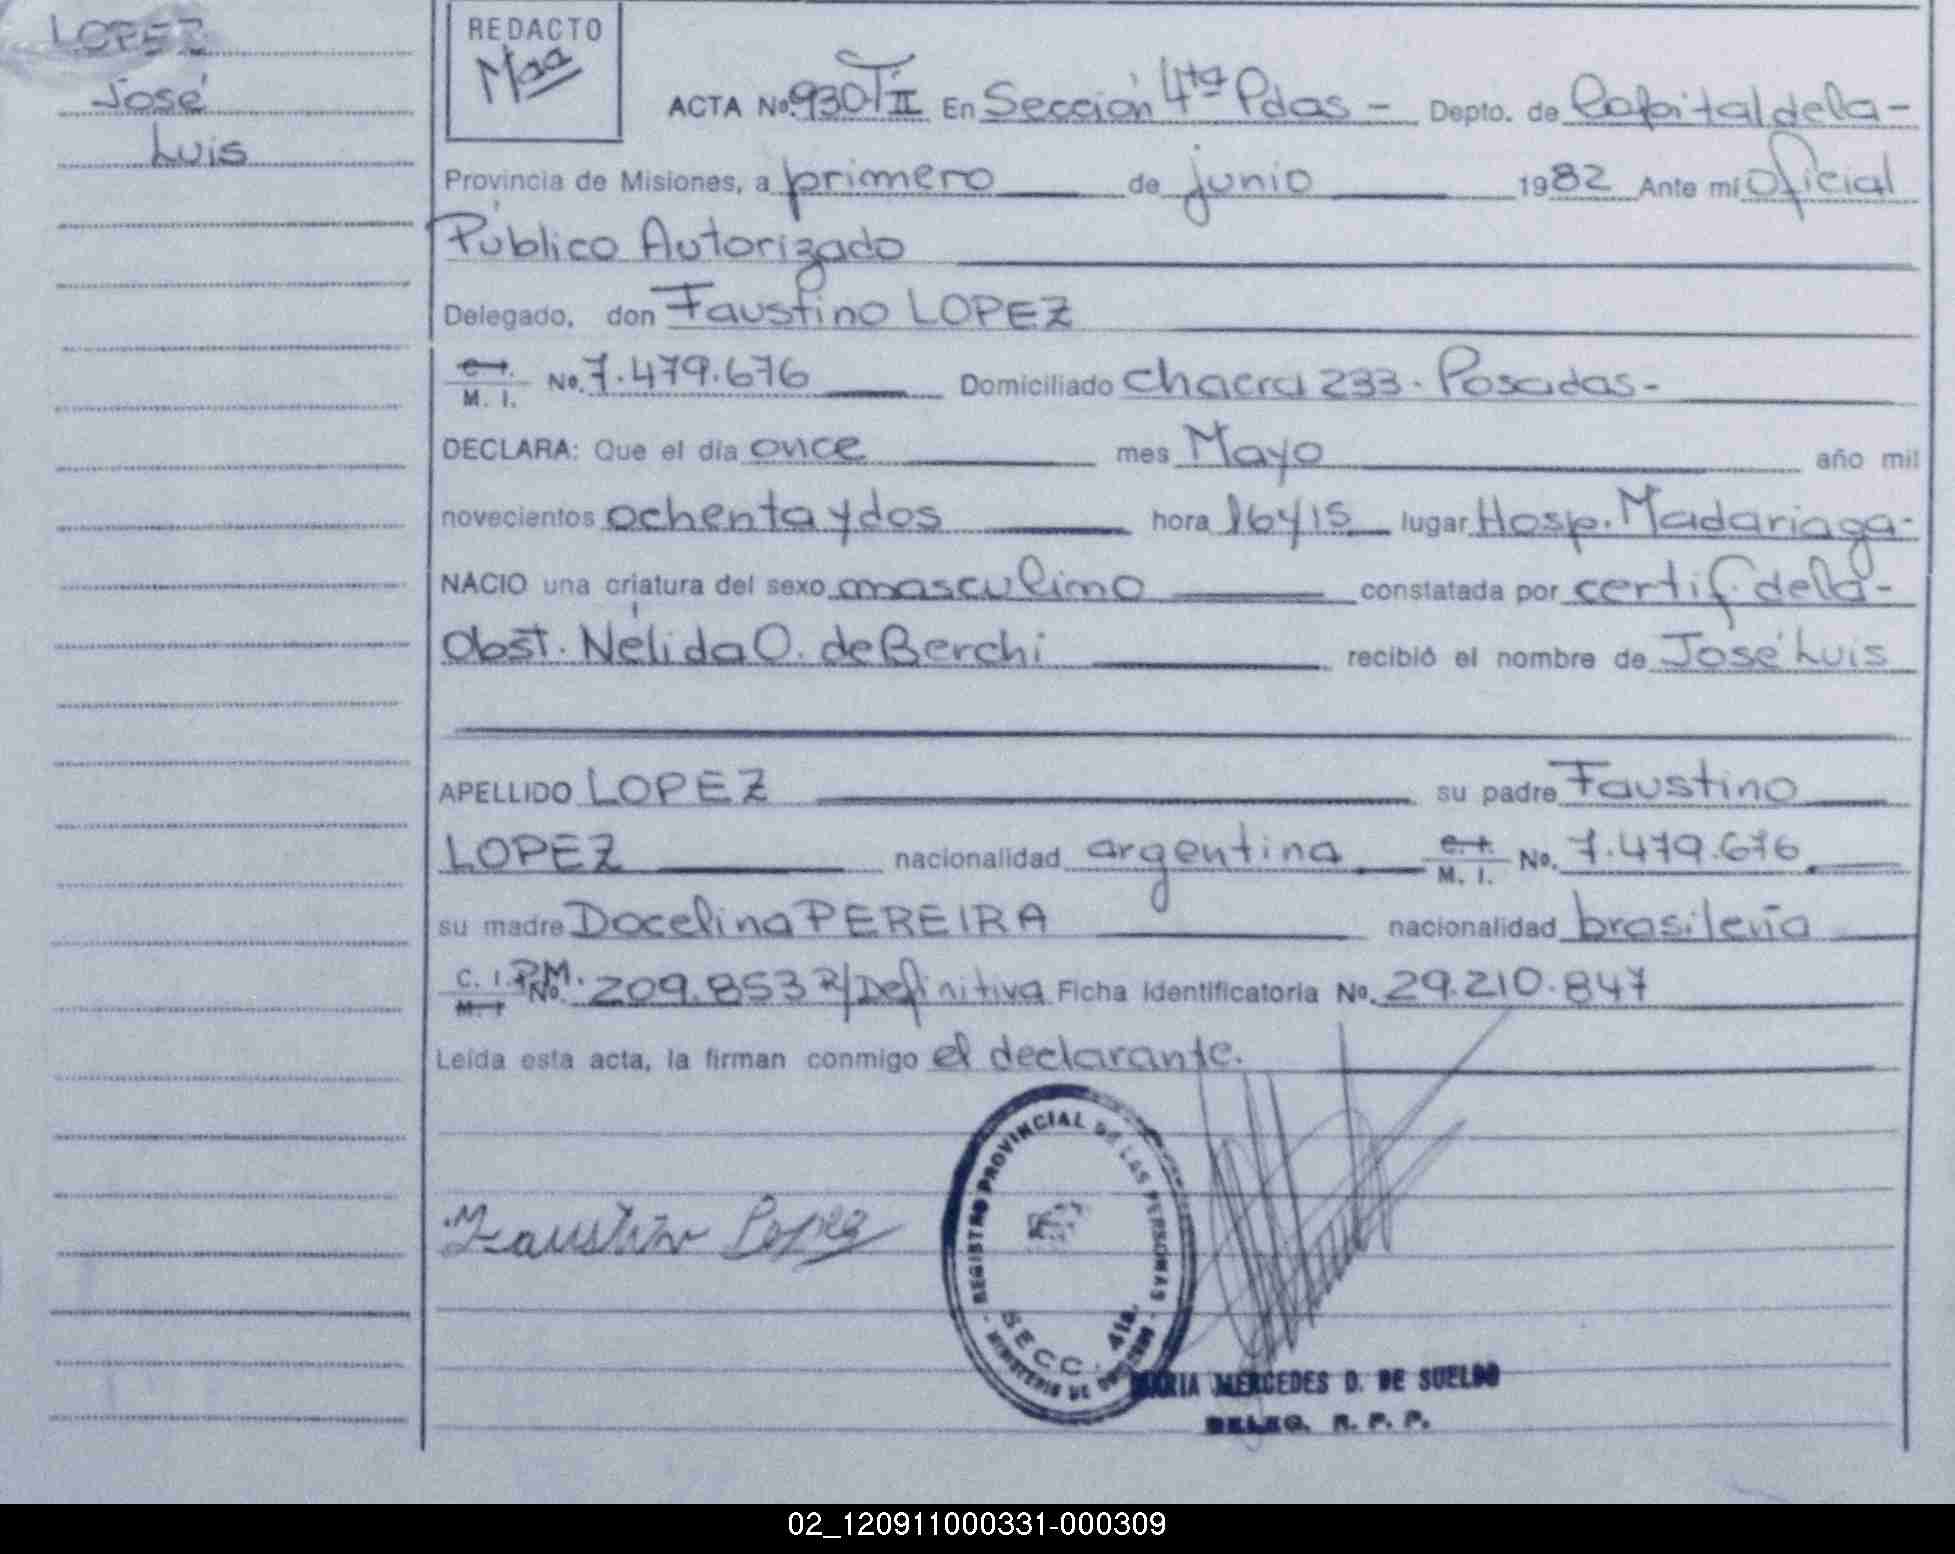 LOPEZ
José
Luis
REDACTO
ACTA No. 930 T II En Sección 4ta Pdas - Depto. de Capital de la -
Provincia de Misiones, a primero de junio 1982 Ante mí Oficial
Público Autorizado
Delegado, don Faustino LOPEZ
C. I. M. I. No. 7.479.676 Domiciliado Chacra 233 - Posadas -
DECLARA: Que el día once mes Mayo año mil
novecientos ochenta y dos hora 16 y 15 lugar Hosp. Madariaga -
NACIO una criatura del sexo masculino constatada por certif. de la -
Obst. Nélida O. de Berchi recibió el nombre de José Luis
APELLIDO LOPEZ su padre Faustino
LOPEZ nacionalidad argentina C. I. M. I. No. 7.479.676
su madre Docelina PEREIRA nacionalidad brasileña
C. I. P.M. M. I. No. 209.853 R/Definitiva Ficha Identificatoria No. 29.210.847
Leída esta acta, la firman conmigo el declarante.
Faustino Lopez
REGISTRO PROVINCIAL DE LAS PERSONAS
SECC. 4ta.
MINISTERIO DE GOBIERNO
MARIA MERCEDES D. DE SUELDO
DELEG. R. P. P.
02_120911000331-000309